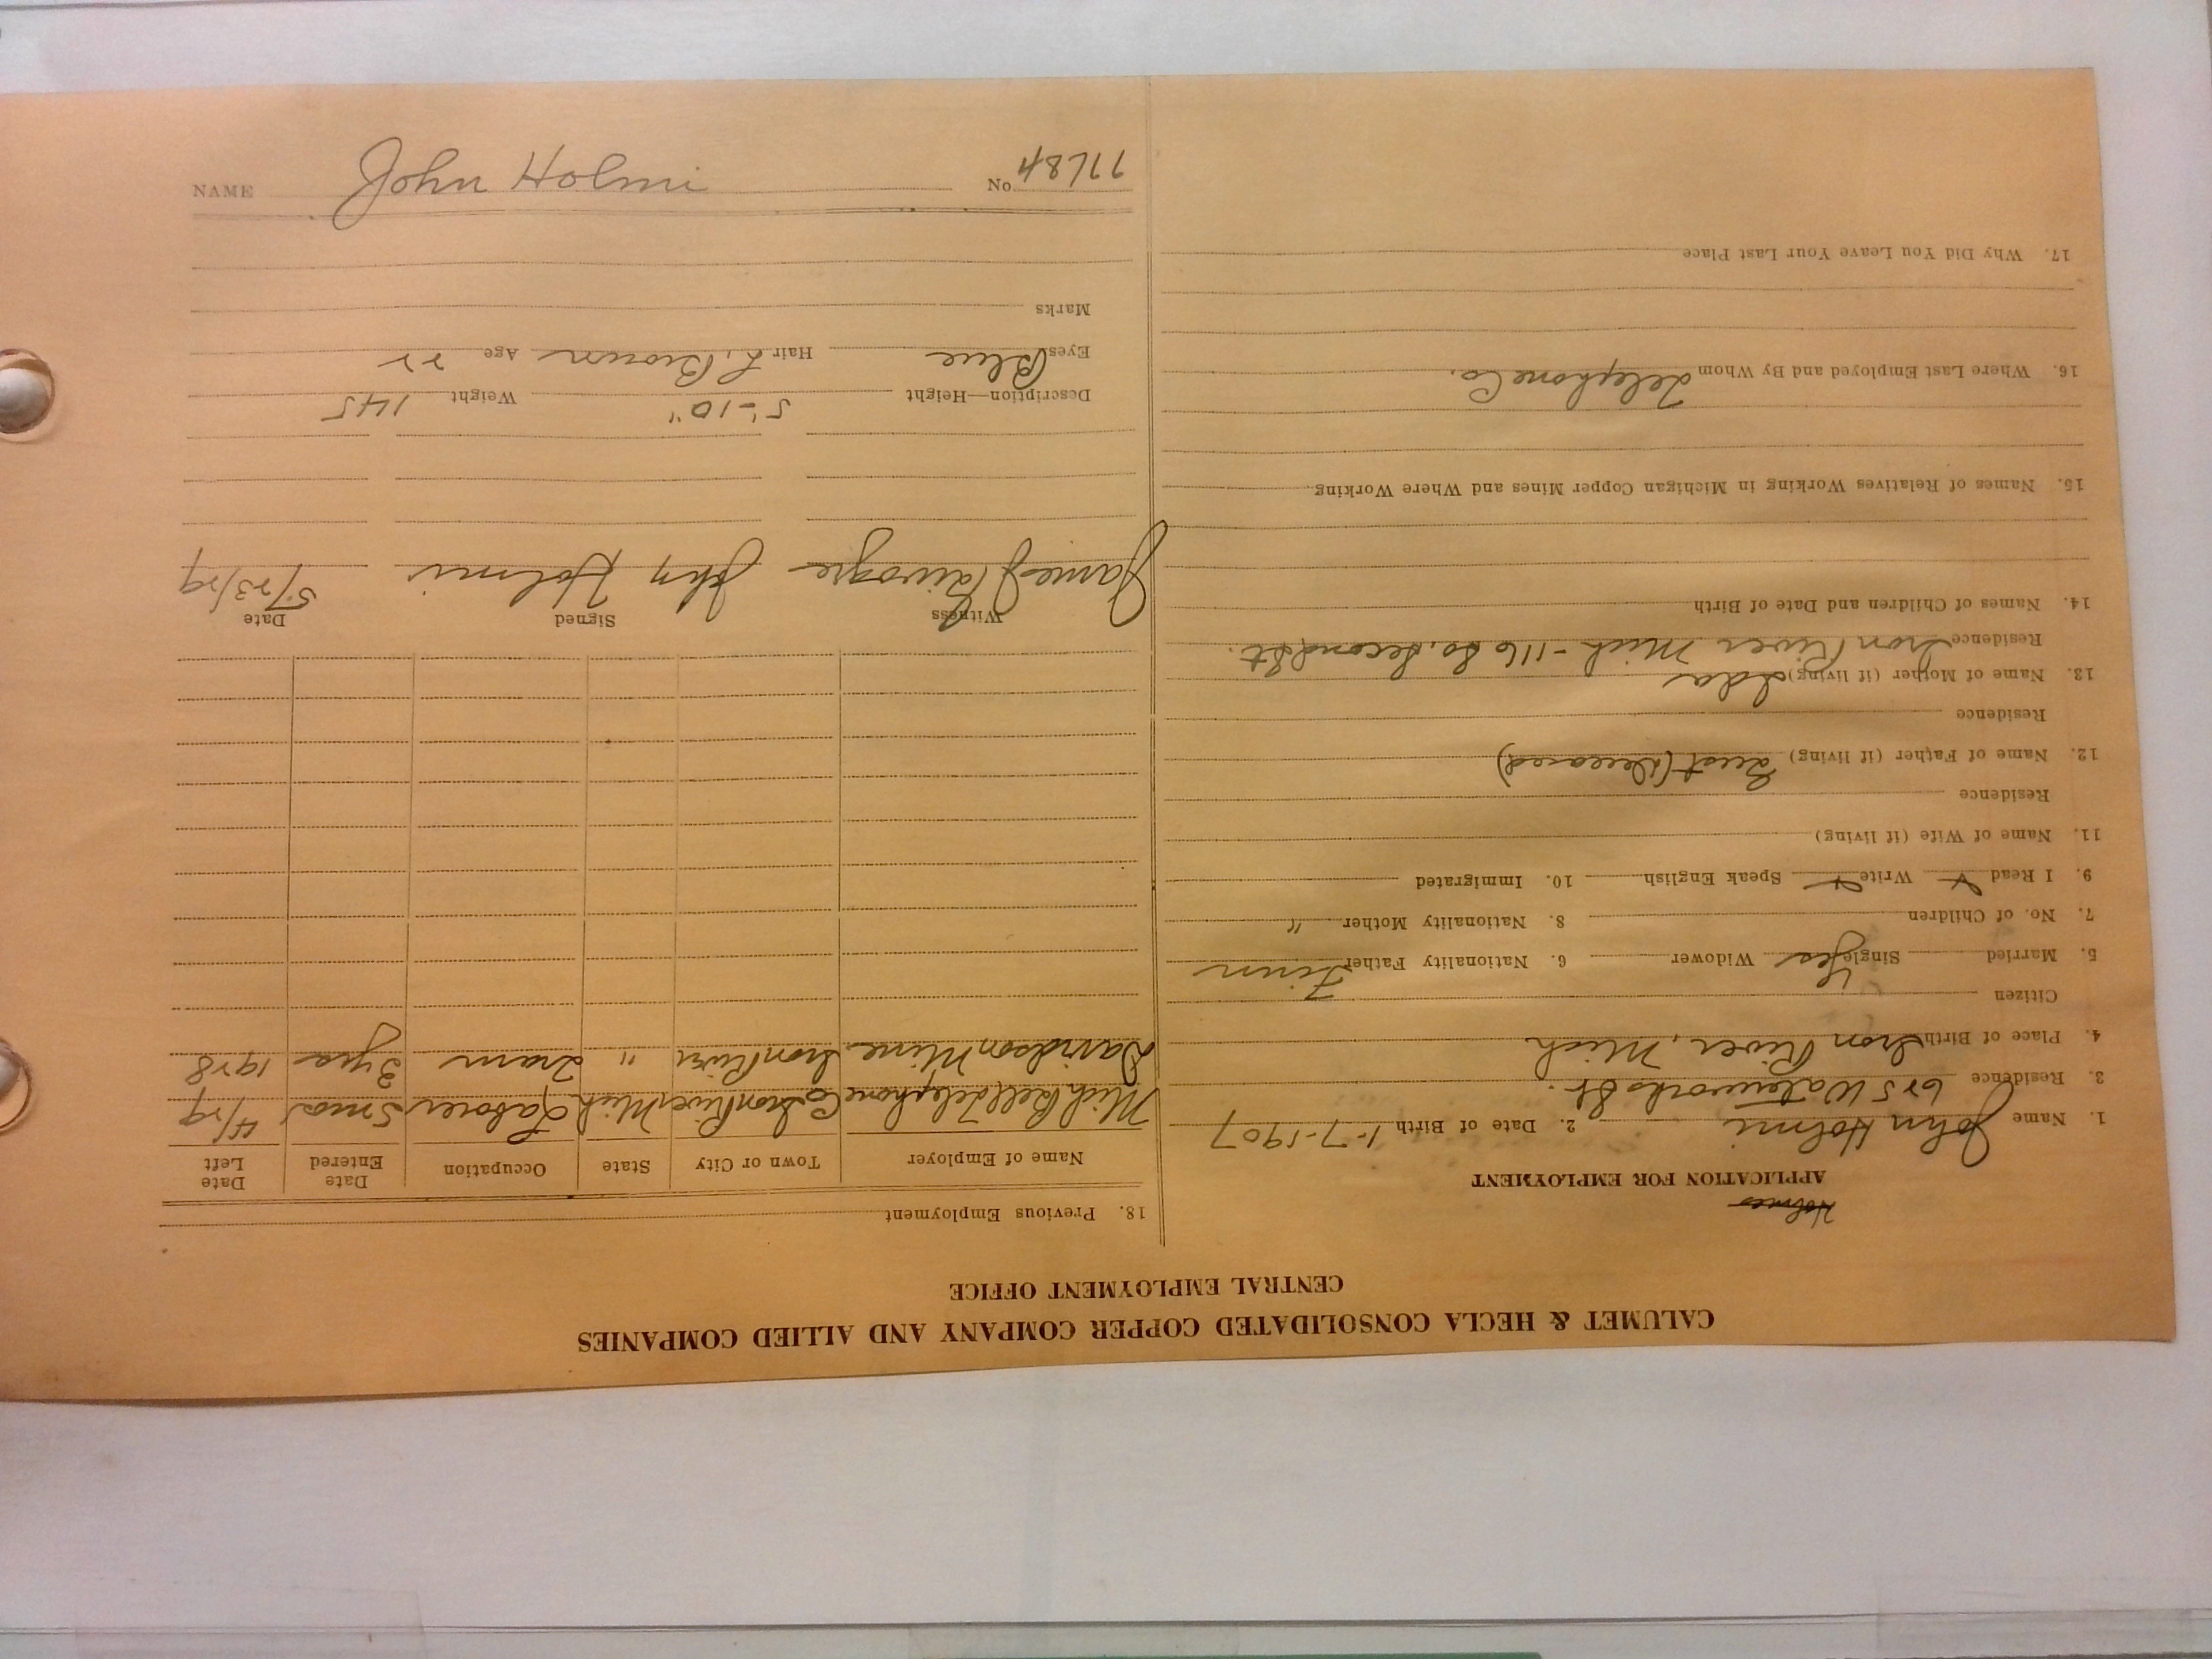 CALUMET & HECLA CONSOLIDATED COPPER COMPANY AND ALLIED COMPANIES
CENTRAL EMPLOYMENT OFFICE
Holmes
APPLICATION FOR EMPLOYMENT
1. Name John Holmi 2. Date of Birth 1-7-1907
3. Residence 625 Waterworks St.
4. Place of Birth Iron River, Mich
Citizen
5. Married Single Yes Widower 6. Nationality Father Finn
7. No. of Children 8. Nationality Mother "
9. I Read Write Speak English 10. Immigrated
11. Name of Wife (if living)
Residence
12. Name of Father (if living) (Deceased)
Residence
13. Name of Mother (if living) Ida
Residence Iron River Mich - 116 So. Second St.
14. Names of Children and Date of Birth
15. Names of Relatives Working in Michigan Copper Mines and Where Working
16. Where Last Employed and By Whom Telephone Co.
17. Why Did You Leave Your Last Place
18. Previous Employment
Name of Employer Town or City State Occupation Date Entered Date Left
Mich Bell Telephone Co Iron River Mich Laborer 5 mos 4/29
Davidson Mine Iron River " Tram 3 yrs 1928
Witness Signed Date
James John Holmi 5/23/29
Description—Height 5'-10" Weight 145
Eyes Blue Hair L. Brown Age 22
Marks
NAME John Holmi
No 77684